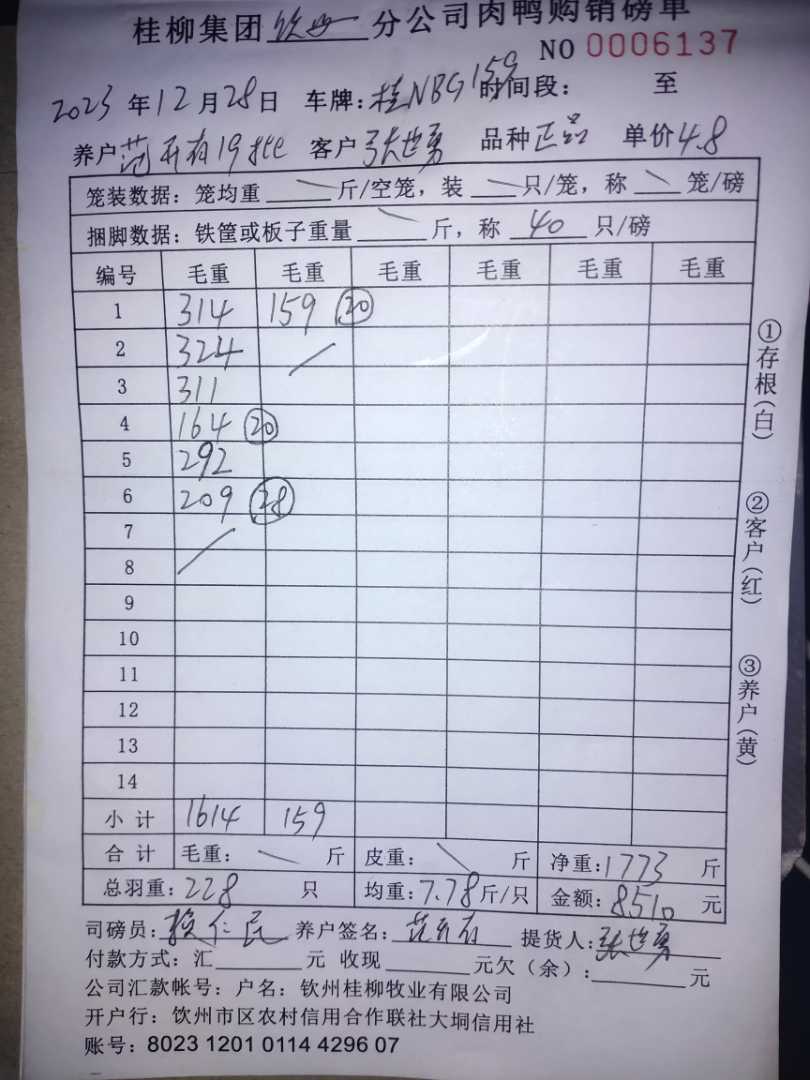 桂柳集团 钦州 分公司肉鸭购销磅单
NO 0006137
2023 年 12 月 28 日 车牌: 桂NBG159 时间段: 至
养户 范开有19批 客户 张世勇 品种 正品 单价 4.8
笼装数据: 笼均重 斤/空笼, 装 只/笼, 称 笼/磅
捆脚数据: 铁筐或板子重量 斤, 称 40 只/磅
编号 毛重 毛重 毛重 毛重 毛重 毛重
1 314 159 20
2 324
3 311
4 164 20
5 292
6 209 28
7
8
9
10
11
12
13
14
小计 1614 159
合计 毛重: 斤 皮重: 斤 净重: 1773 斤
总羽重: 228 只 均重: 7.78 斤/只 金额: 8510 元
司磅员: 仁民 养户签名: 范开有 提货人: 张世勇
付款方式: 汇 元 收现 元欠(余): 元
公司汇款帐号: 户名: 钦州桂柳牧业有限公司
开户行: 钦州市区农村信用合作联社大垌信用社
账号: 8023 1201 0114 4296 07
①存根(白)
②客户(红)
③养户(黄)